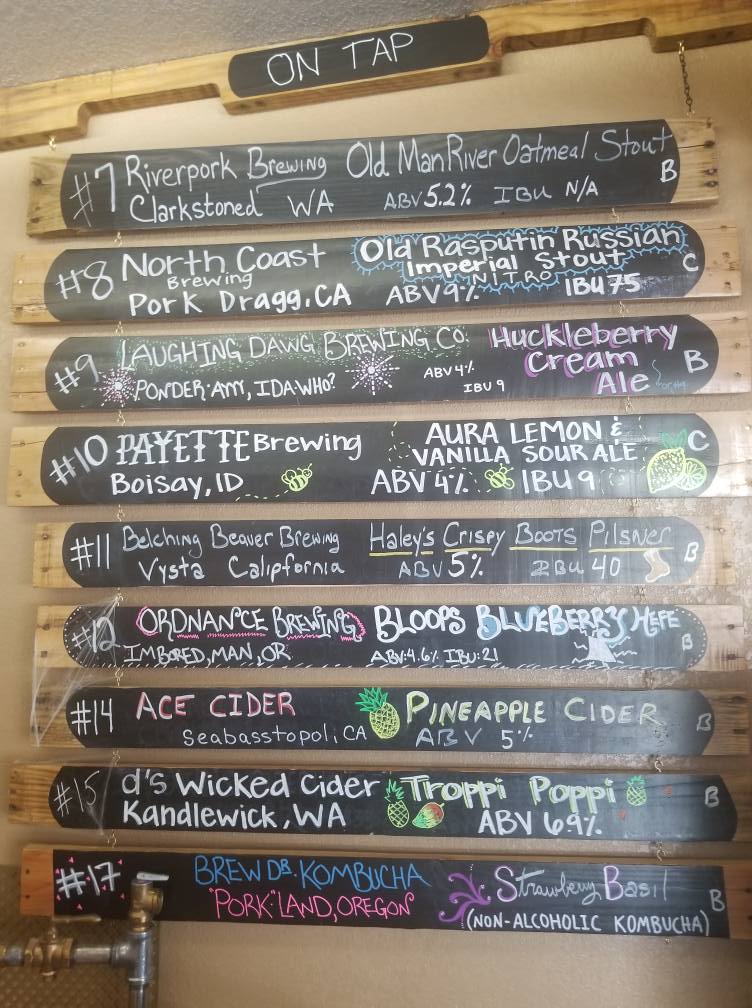 ON TAP
#7 Riverpork Brewing Old Man River Oatmeal Stout B
Clarkstoned WA ABV 5.2% IBU N/A
#8 North Coast Old Rasputin Russian C
Brewing Imperial Stout
NITRO
Pork Dragg, CA ABV 9% IBU 75
#9 LAUGHING DAWG BREWING CO. Huckleberry B
Cream
PONDER-AMY, IDAWHO? ABV 4% Ale
IBU 9
#10 PAYETTE Brewing AURA LEMON & C
VANILLA SOUR ALE
Boisay, ID ABV 4% IBU 9
#11 Belching Beaver Brewing Haley's Crispy Boots Pilsner B
Vysta Calipfornia ABV 5% IBU 40
#12 ORDNANCE BREWING BLOOPS BLUEBERRY HEFE B
IMBORED, MAN, OR ABV: 4.6% IBU: 21
#14 ACE CIDER PINEAPPLE CIDER B
Seabasstopol, CA ABV 5%
#15 d's Wicked Cider Troppi Poppi B
Kandlewick, WA ABV 6.9%
#17 BREW DR. KOMBUCHA Strawberry Basil B
"PORK" LAND, OREGON (NON-ALCOHOLIC KOMBUCHA)